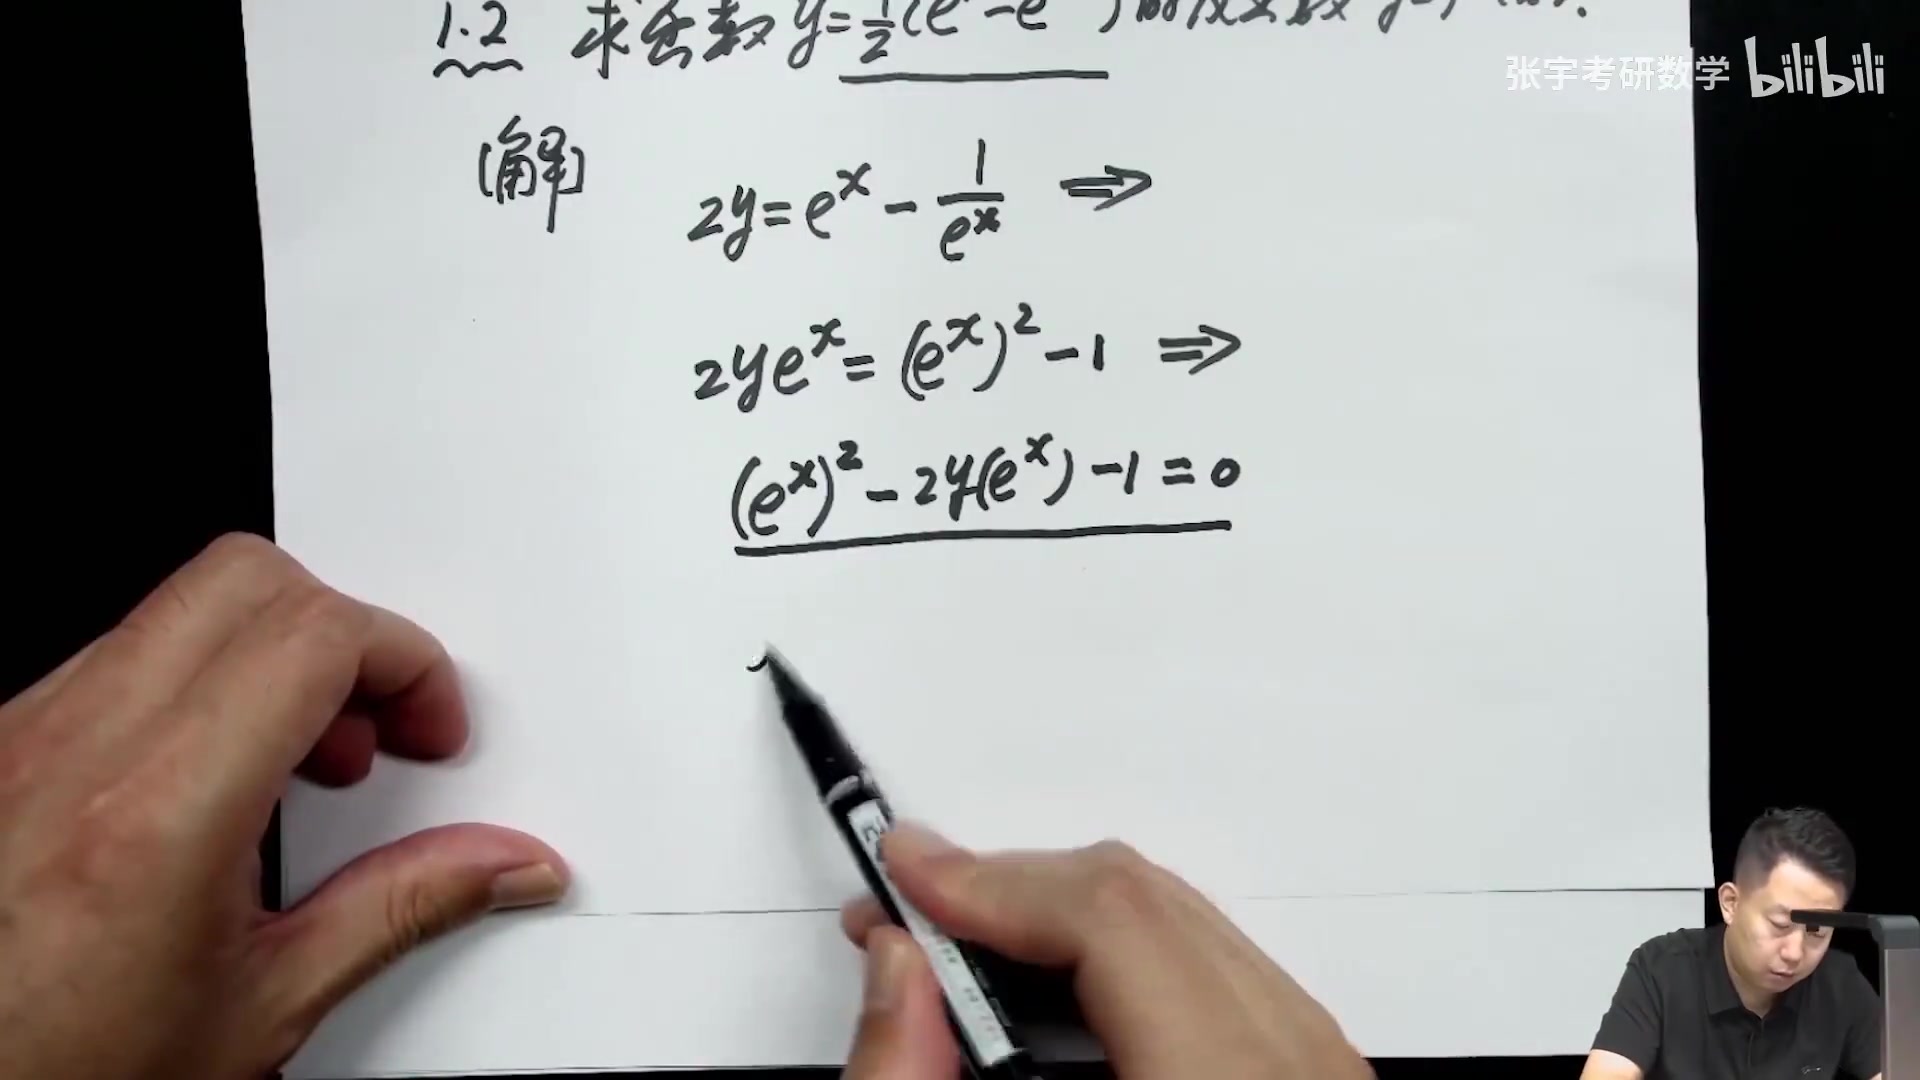 1.2 求函数 y=½(e -e ) 的反函数
张宇考研数学 bilibili
[解]
2y=e^x - 1/e^x ⇒
2ye^x = (e^x)^2 -1 ⇒
(e^x)^2 - 2y(e^x) -1 = 0